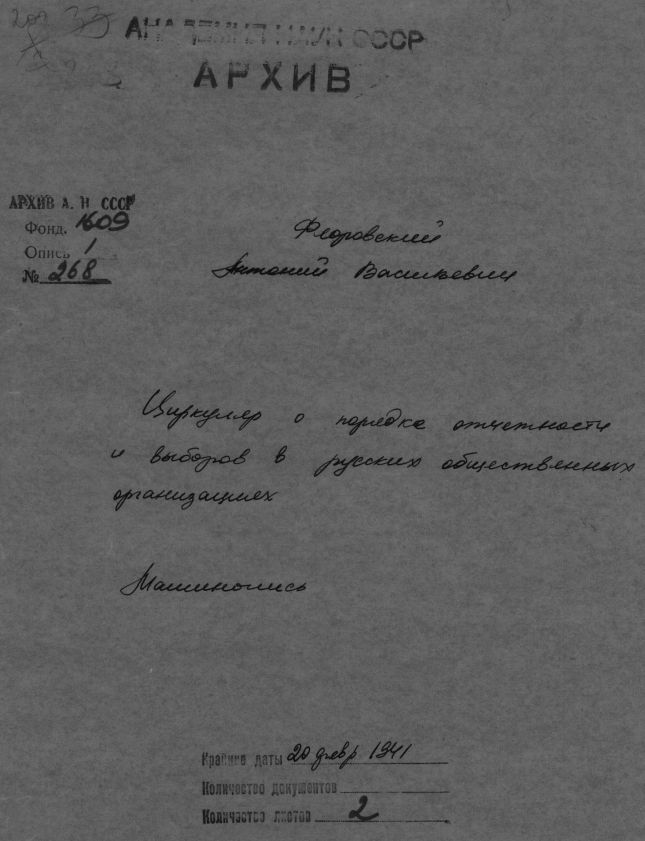 АКАДЕМИЯ НАУК СССР
АРХИВ
АРХИВ А. Н СССР
Фонд. 1609
Опись 1
№ 268
Флоровский
Антоний Васильевич
Циркуляр о порядке отчетности
и выборов в русских общественных
организациях
Машинопись
Крайние даты 20 февр. 1941
Количество документов
Количество листов 2